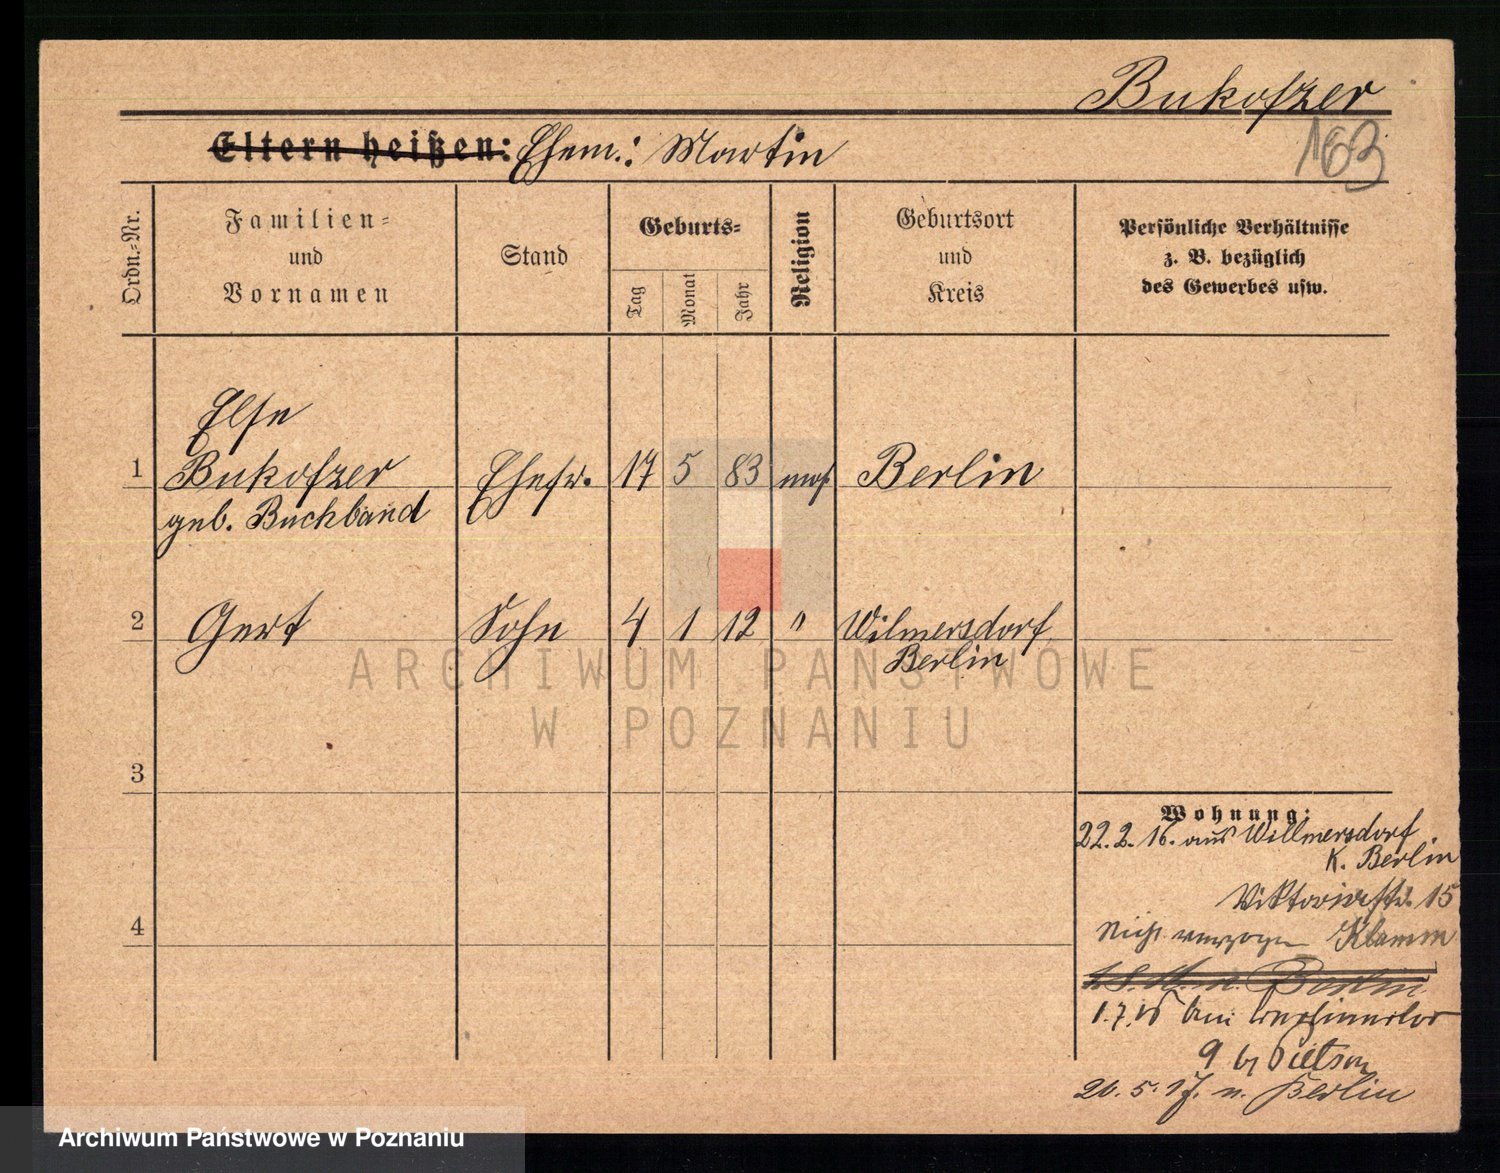 Bukofzer
163
Eltern heißen: Ehem.: Martin
Ordn.-Nr.
Familien-
und
Vornamen
Stand
Geburts-
Tag
Monat
Jahr
Religion
Geburtsort
und
Kreis
Persönliche Verhältnisse
z. B. bezüglich
des Gewerbes usw.
Else
1 Bukofzer Ehefr. 17 5 83 mos. Berlin
geb. Buchband
2 Gert Sohn 4 1 12 " Wilmersdorf
Berlin
ARCHIWUM PAŃSTWOWE
W POZNANIU
3
4
Wohnung:
22.2.16. aus Willmersdorf
K. Berlin
Viktoriastr. 15
Nicht verzogen Klamm
Berlin
1.7.16 Am Berlinertor
9 b/ Pietsch
20.5.17. n. Berlin
Archiwum Państwowe w Poznaniu